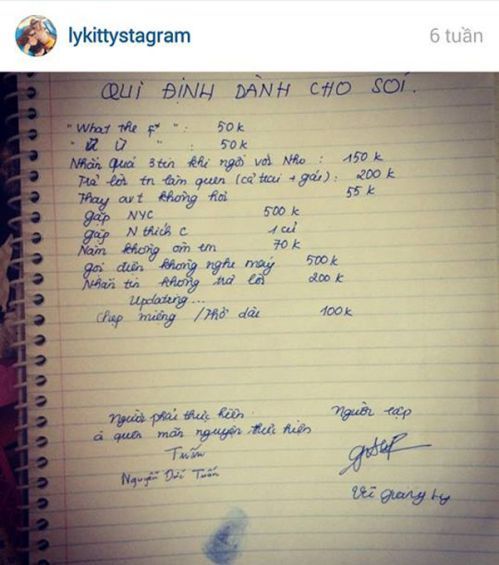 lykittystagram
6 tuần
QUI ĐỊNH DÀNH CHO SÓI.
"What the f* ": 50k
" Ừ Ừ " : 50k
Nhắn quá 3 tin khi ngồi với Nho : 150k
Trả lời tn làm quen (cả trai + gái) : 200k
Thay avt không hỏi 55k
gặp NYC 500k
gặp N thích C 1 củ
Nằm không ôm em 70k
gọi điện không nghe máy 500k
Nhắn tin không trả lời 200k
Updating...
Chẹp miệng / Thở dài 100k
Người phải thực hiện Người lập
à quên mãn nguyện thực hiện
Tuấn
Nguyễn Đức Tuấn
Vũ Giang Ly